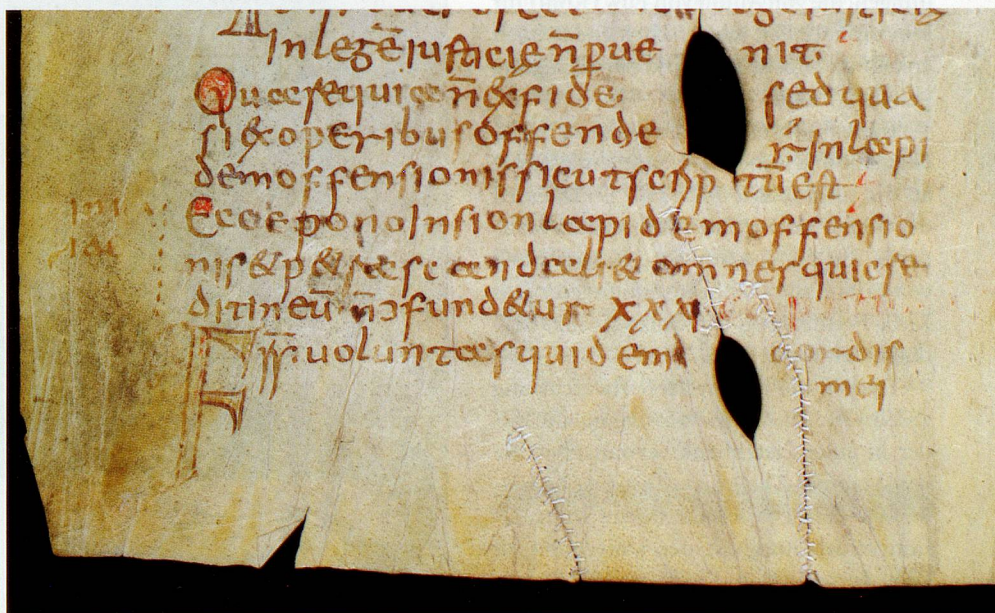 in legē iusticię n̄ peruenit
Quare quia n̄ ex fide sed qua
si ex operibus offender̄ in lapi
dem offensionis sicut scrip tū est
Ecce pono in sion lapidem offensio
nis & p&ra scandali & omnes qui cre
dit in eū n̄ c̄fund&ur xxxi
Fr̄r̄ uoluntas quidem cordis
mei